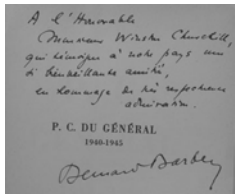 A l'Honorable
Monsieur Winston Churchill,
qui témoigne à notre pays une
si bienveillante amitié,
en hommage de très respectueuse
admiration.
P. C. DU GÉNÉRAL
1940-1945
Bernard Barbey